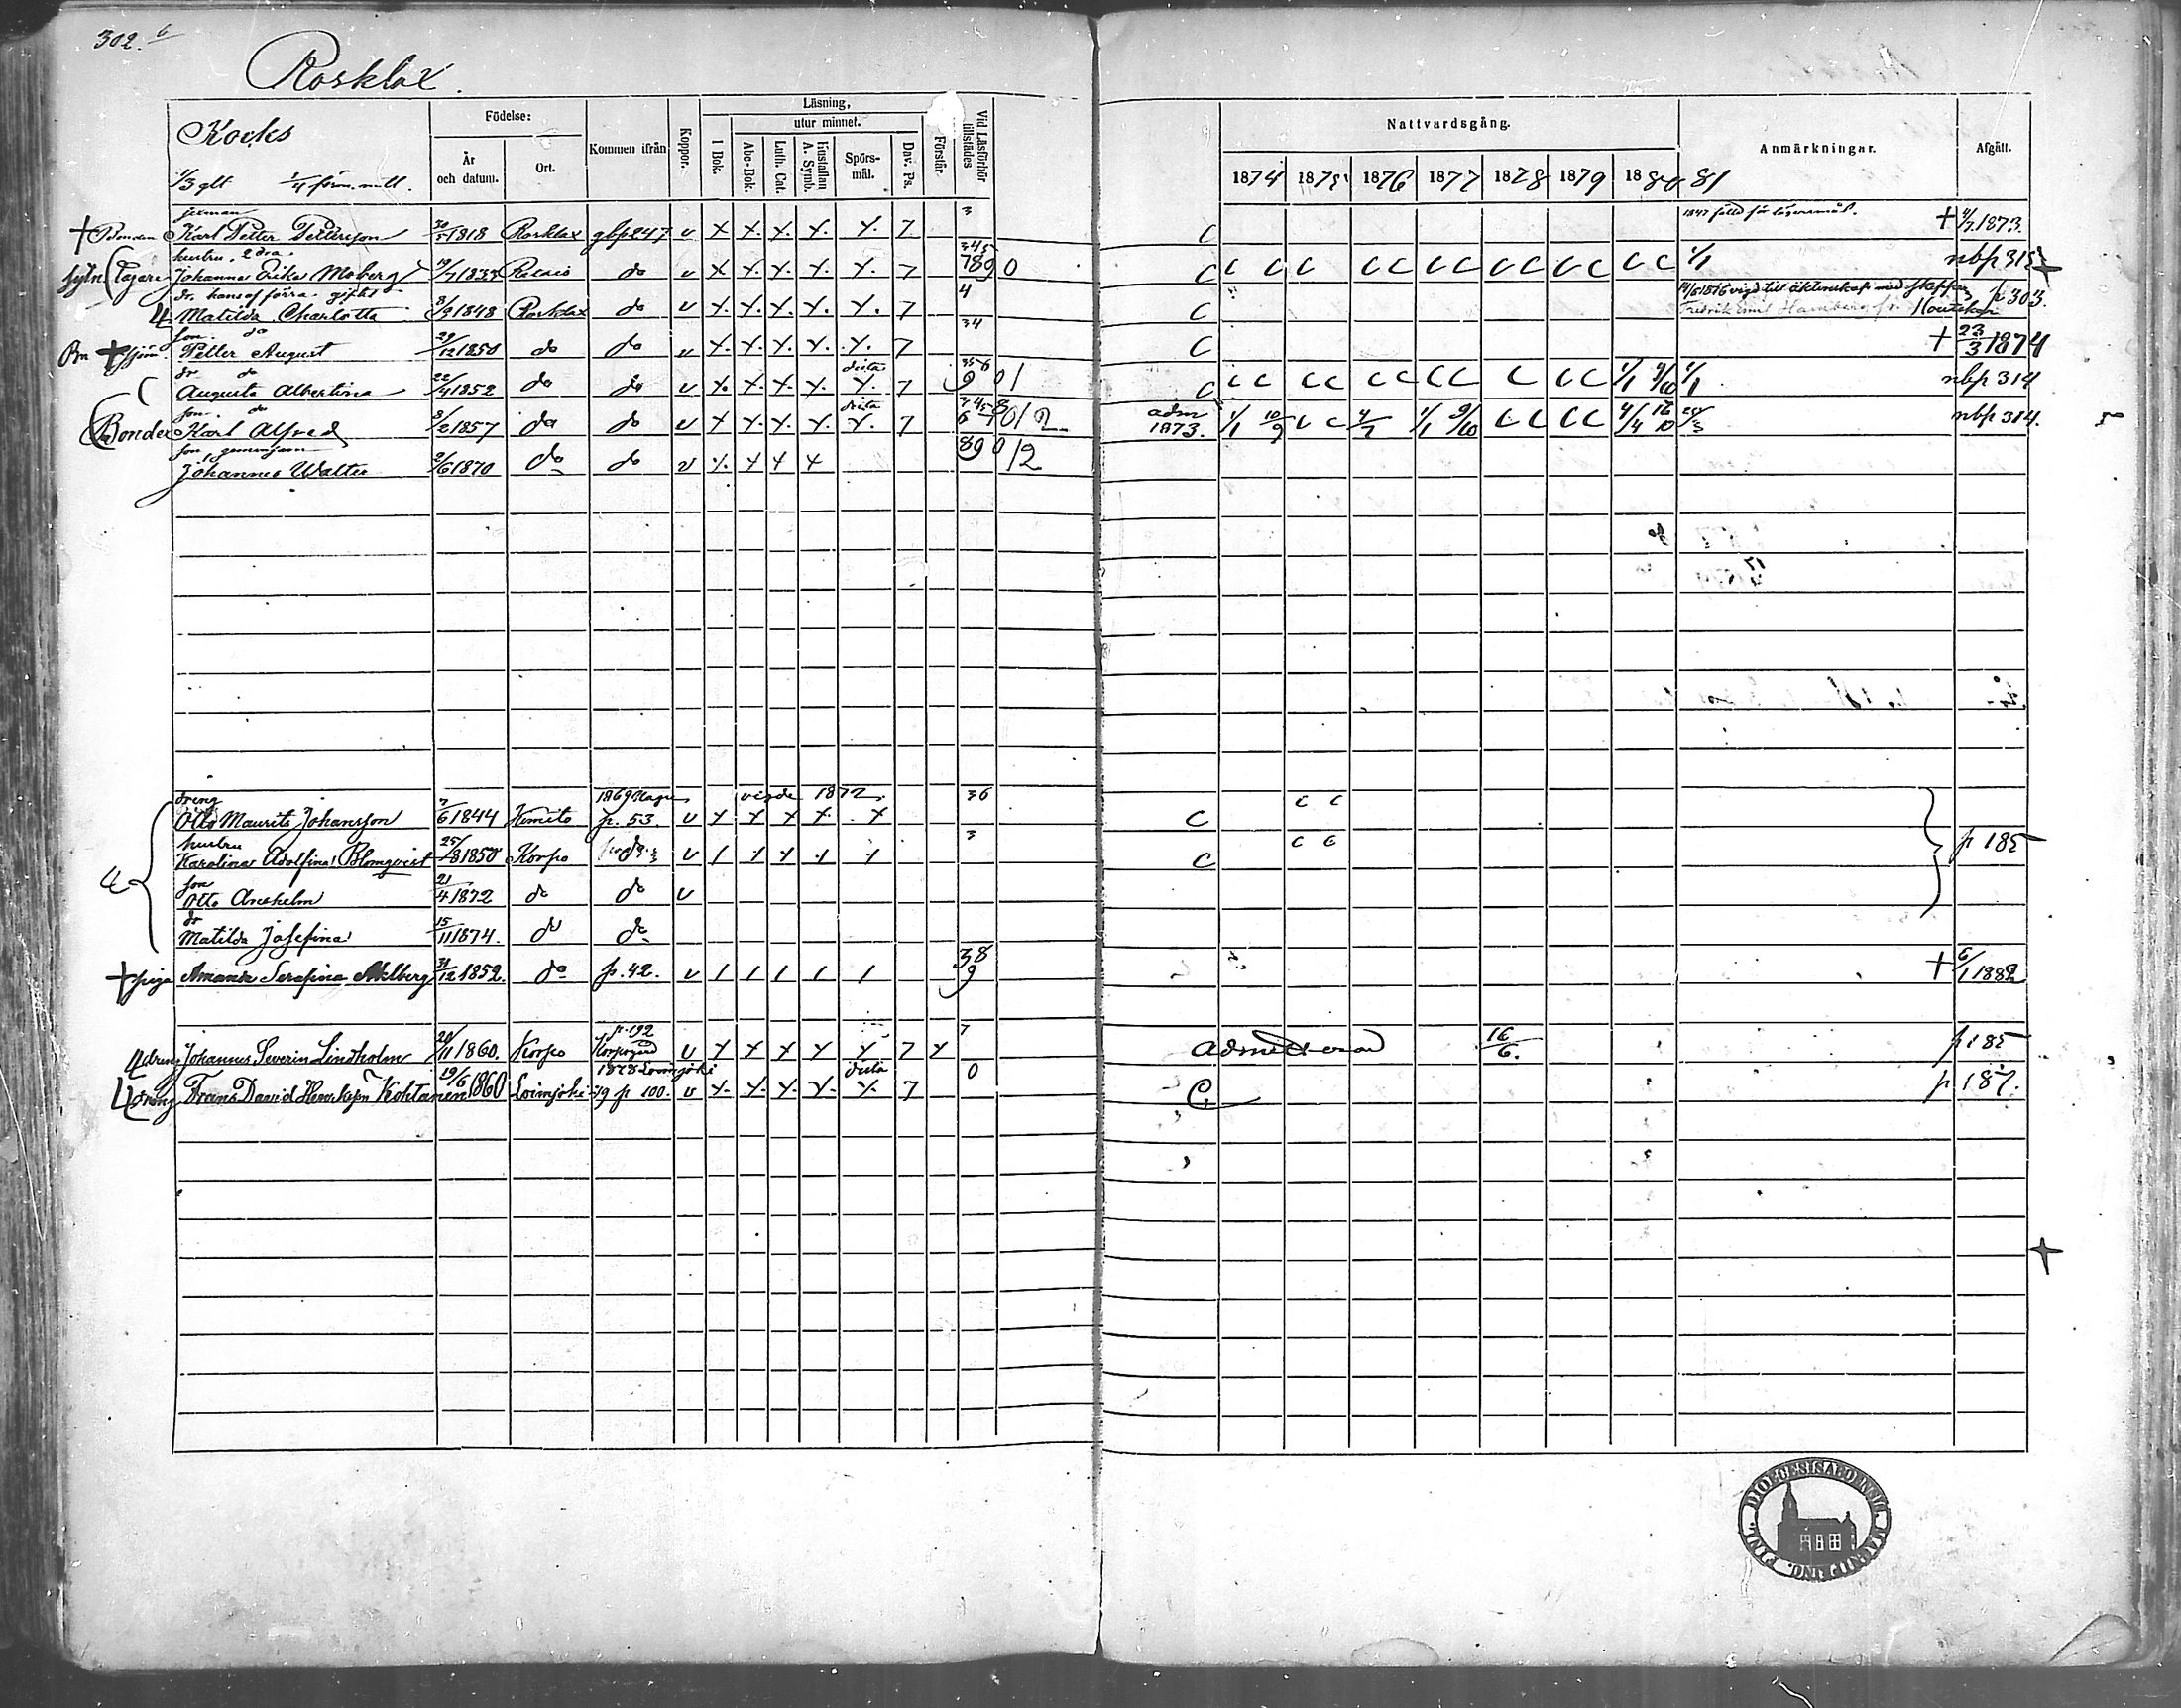 302.
Rosklax.
Kocks
1/3 glt 1/4 förm. mtl.
Födelse:
År och datum.
Ort.
Kommen ifrån
Koppor.
Läsning,
utur minnet.
I Bok.
Abc-Bok.
Luth. Cat.
Hustaflan A. Symb.
Spörsmål.
Dav. Ps.
Förstår
Vid Läsförhör tillstädes
Nattvardsgång.
1874 1875 1876 1877 1878 1879 1880 81
Anmärkningar.
Afgått.
+ Bonden Karl Petter Pettersson 30/5 1818 Rosklax gbp 247 v x x. x. x. x. 7 3 C 1847 fälld för lägersmål. + 4/7 1873.
hustru, 2dra
Johanna Erika Moberg 19/7 1835 do v x x. x. x. x. 7 345 789 0 C C C C C C C C C C C C C C C 1/1 nbp 315
dr. hans af förra giftet
4 Matilda Charlotta 8/9 1848 Rosklax do v x. x. x. x. x. 7 4 C 14/5 1876 vigd till äktenskap med Fredrik Emil Houtskär p 303.
son. do
Petter August 29/12 1850 do do v x. x. x. x. x. 7 34 C + 23/3 1874
dr do
Augusta Albertina 22/4 1852 do do v x. x. x. x. x. 7 356 9 01 C C C C C C C C C C C C 1/1 9/10 1/1 nbp 314
son. do
Bonde Karl Alfred 8/2 1857 do do v x x. x. x. x. 7 8 012 adm 1873. 1/1 10/9 C C 4/7 1/1 9/10 C C C C 4/4 nbp 314.
son, gemensam
Johannes Walter 2/6 1870 do do v x x x 890 12
dreng 1869 3 6
Otto Maurits Johansson 7/6 1844 Kimito p. 53. v x x x x. x C C C
hustru
Karolina Adolfina Blomqvist 25/8 1850 Korpo do v 3 C C C p 185
son
Otto Anshelm 21/4 1872 do do v
dr
Matilda Josefina 15/11 1874. do do
+ piga Amanda Serafina Ahlberg 31/12 1852. do p. 42. v / / / / / 38 9 + 6/1 1882
p. 192
4 dreng Johannes Severin Lindholm 20/11 1860. Korpo v x x x x x 7 x 7 16/6. p 185
1878 Loimjoki
4 dreng Frans David Henriksson Kohtanen 19/6 1860 Loimjoki p 100. v x. x. x. x. x. 7 0 C p 187.